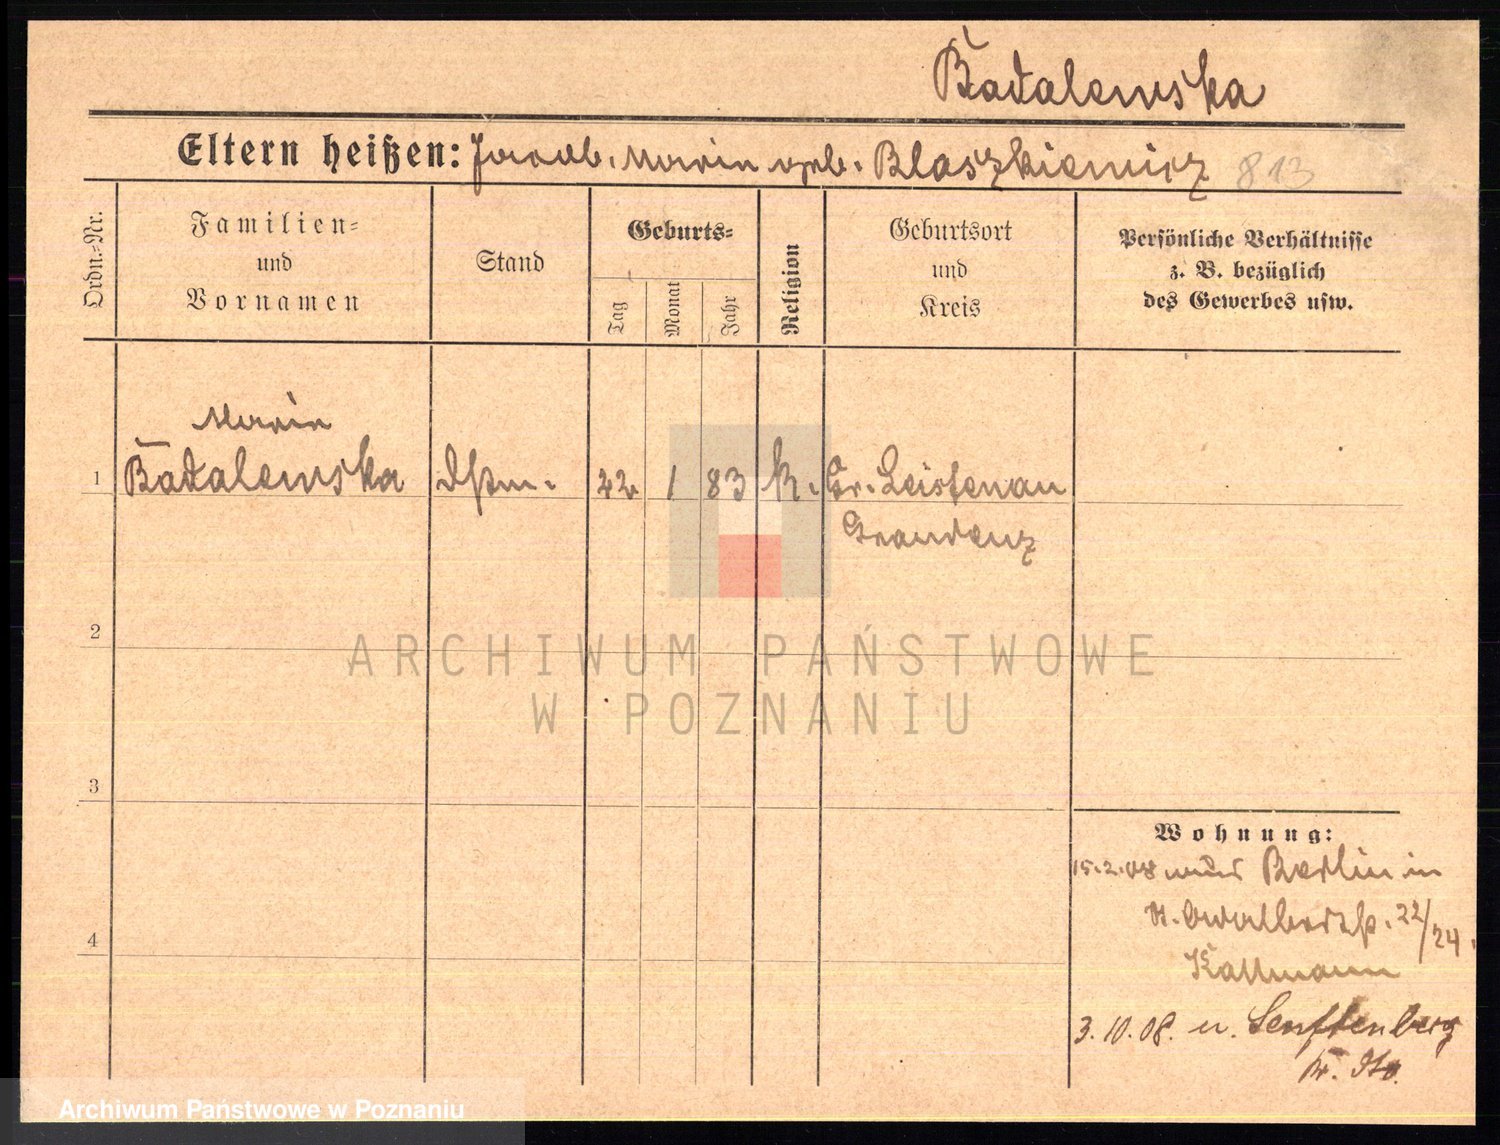 Badalewska
Eltern heißen: Jacob. Maria geb. Blaszkiewicz 813
Ordn.-Nr.
Familien-
und
Vornamen
Stand
Geburts-
Tag
Monat
Jahr
Religion
Geburtsort
und
Kreis
Persönliche Verhältnisse
z. B. bezüglich
des Gewerbes usw.
Maria
1 Badalewska 22 1 83 k. Gr. Leistenau
Graudenz
2
ARCHIWUM PAŃSTWOWE
W POZNANIU
3
Wohnung:
15.2.08 Berlin in
22/24.
4
3.10.08. n. Senftenberg
Archiwum Państwowe w Poznaniu